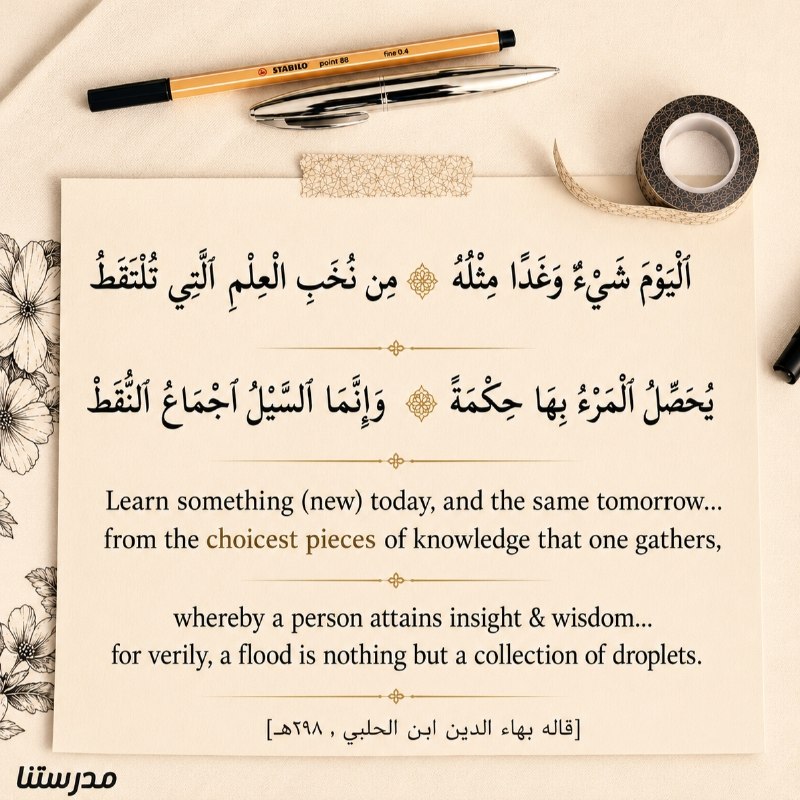 STABILO point 88 fine 0.4
ٱلْيَوْمَ شَيْءٌ وَغَدًا مِثْلُهُ مِن نُخَبِ الْعِلْمِ ٱلَّتِي تُلْتَقَطُ
يُحَصِّلُ ٱلْمَرْءُ بِهَا حِكْمَةً وَإِنَّمَا ٱلسَّيْلُ ٱجْمَاعُ ٱلنُّقَطْ
Learn something (new) today, and the same tomorrow...
from the choicest pieces of knowledge that one gathers,
whereby a person attains insight & wisdom...
for verily, a flood is nothing but a collection of droplets.
[قاله بهاء الدين ابن الحلبي , ٢٩٨هـ]
مدرستنا